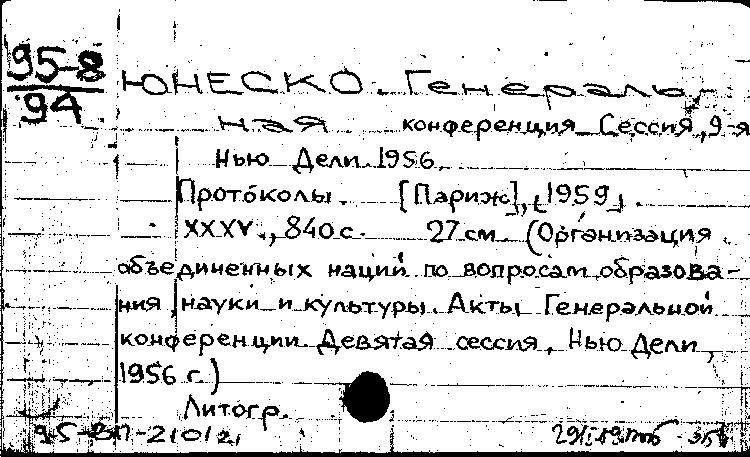 95-8
94
ЮНЕСКО. Генераль-
ная конференция. Сессия, 9-я
Нью Дели. 1956.
Протоколы. [Париж], [1959].
XXXV., 840 с. 27 см. (Организация
объединенных наций по вопросам образова-
ния, науки и культуры. Акты Генеральной
конференции. Девятая сессия, Нью Дели,
1956 г.)
Литогр.